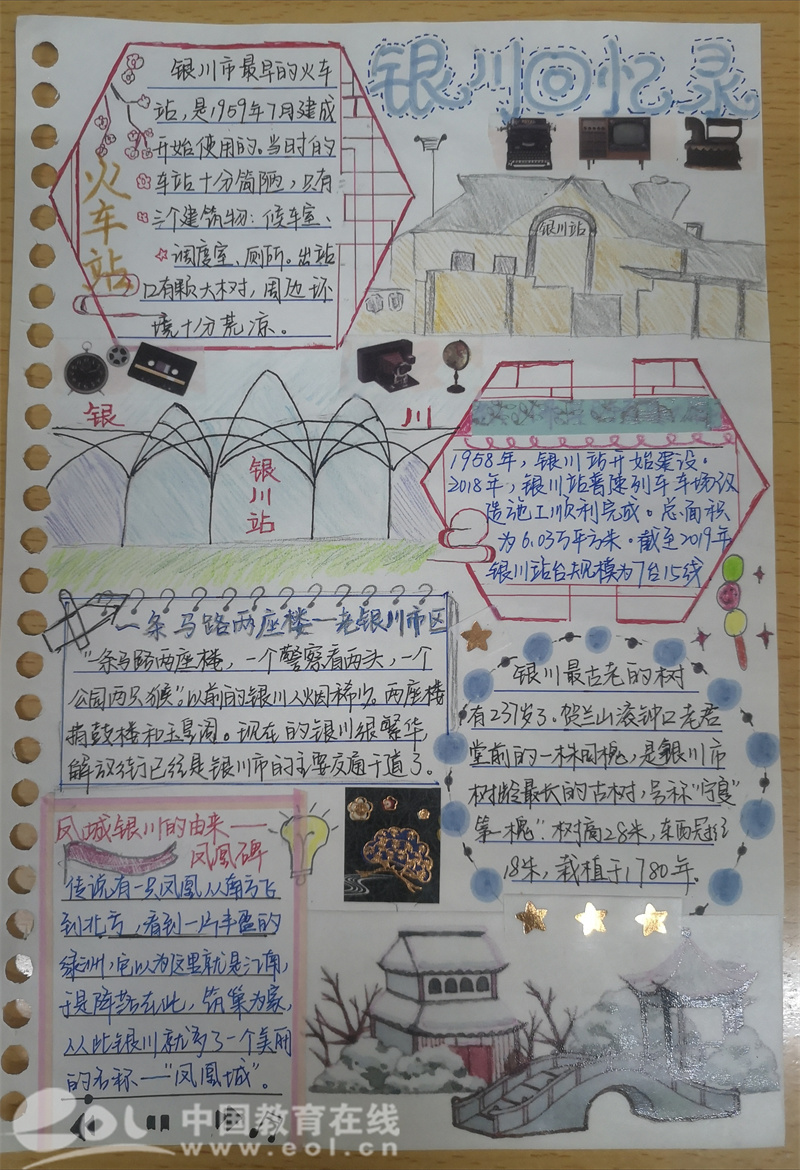 银川回忆录
火车站
银川市最早的火车
站，是1959年7月建成
开始使用的。当时的
车站十分简陋，只有
三个建筑物：候车室、
调度室、厕所。出站
口有颗大树，周边环
境十分荒凉。
银川站
银
川
银川站
1958年，银川站开始建设。
2018年，银川站普速列车车场改
造施工顺利完成。总面积
为6.03万平方米。截至2019年
银川站台规模为7台15线
一条马路两座楼—老银川市区
"一条马路两座楼，一个警察看两头，一个
公园两只猴"。以前的银川人烟稀少。两座楼
指鼓楼和玉皇阁。现在的银川很繁华
解放街已经是银川市的主要交通干道了。
银川最古老的树
有237岁了。贺兰山滚钟口老君
堂前的一株国槐，是银川市
树龄最长的古树，号称"宁夏
第一槐"。树高28米，东西冠径
18米，栽植于1780年。
凤城银川的由来——
凤凰碑
传说有一只凤凰从南方飞
到北方，看到一片丰盈的
绿洲，它以为这里就是江南，
于是降落在此，筑巢为家，
从此银川就多了一个美丽
的名称—"凤凰城"。
eol 中国教育在线
www.eol.cn